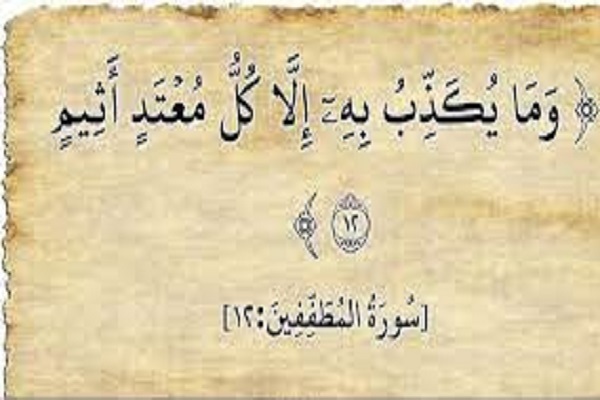 ﴿ وَمَا يُكَذِّبُ بِهِۦٓ إِلَّا كُلُّ مُعْتَدٍ أَثِيمٍ
١٢ ﴾
[سُورَةُ المُطَفِّفِينَ:١٢]